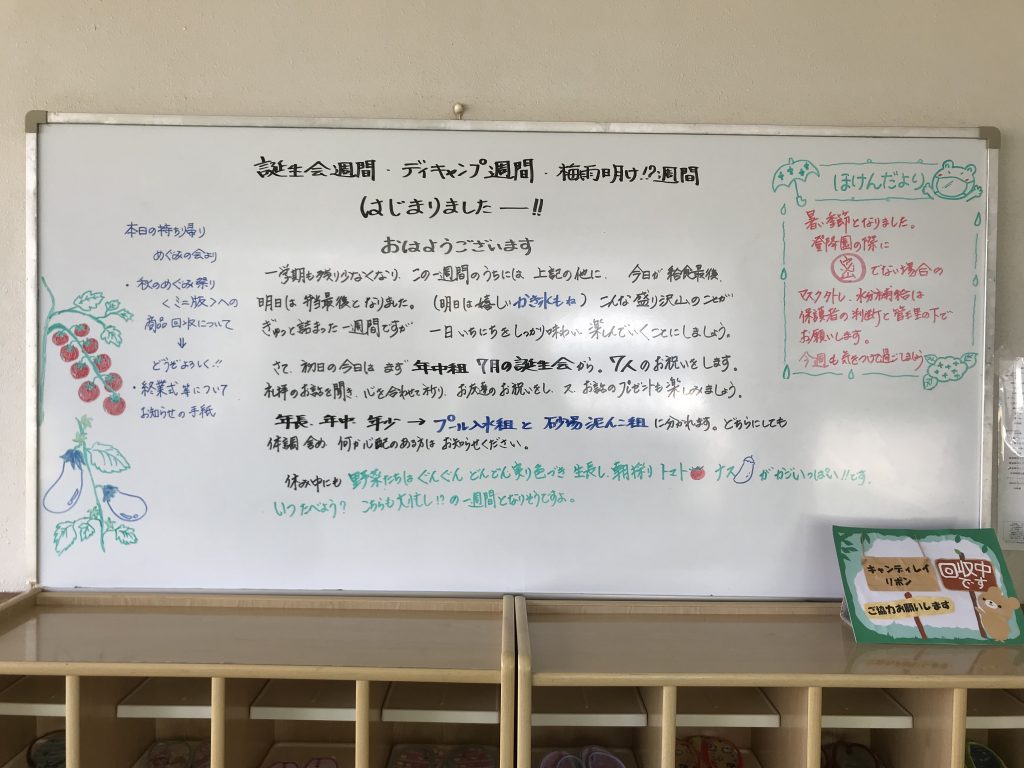 誕生会週間・デイキャンプ週間・梅雨明け!?週間
はじまりました―!!
おはようございます
一学期も残り少なくなり、この一週間のうちには、上記の他に、今日が給食最後、
明日は弁当最後となりました。(明日は嬉しいかき氷もね)こんな盛り沢山のことが
ぎゅっと詰まった一週間ですが 一日いちにちをしっかり味わい楽しんでいくことにしましょう。
さて、初日の今日は まず 年中組 7月の誕生会から。7人のお祝いをします。
神様のお話を聞き、心を合わせて祈り、お友達のお祝いをし、又 お話のプレゼントも楽しみましょう。
年長、年中 年少 → プール入水組 と 砂場泥んこ組 に分かれます。どちらにしても
体調含め 何か心配のある方は お知らせください。
休み中にも 野菜たちはぐんぐん どんどん実り色づき 生長し、朝採り トマト ナス が カゴいっぱい!!です。
いつたべよう? こちらも大忙し!?の一週間となりそうですよ。
本日の持ち帰り
めぐみの会より
・秋のめぐみ祭り
<ミニ版>への
商品回収について
↓
どうぞよろしく!!
・終業式等について
お知らせの手紙
ほけんだより
暑い季節となりました。
登降園の際に
密 でない場合の
マスク外し、水分補給は
保護者の判断と管理の下で
お願いします。
今週も気をつけて過ごしましょう
キャンディレイ
リボン
回収中
です
ご協力お願いします